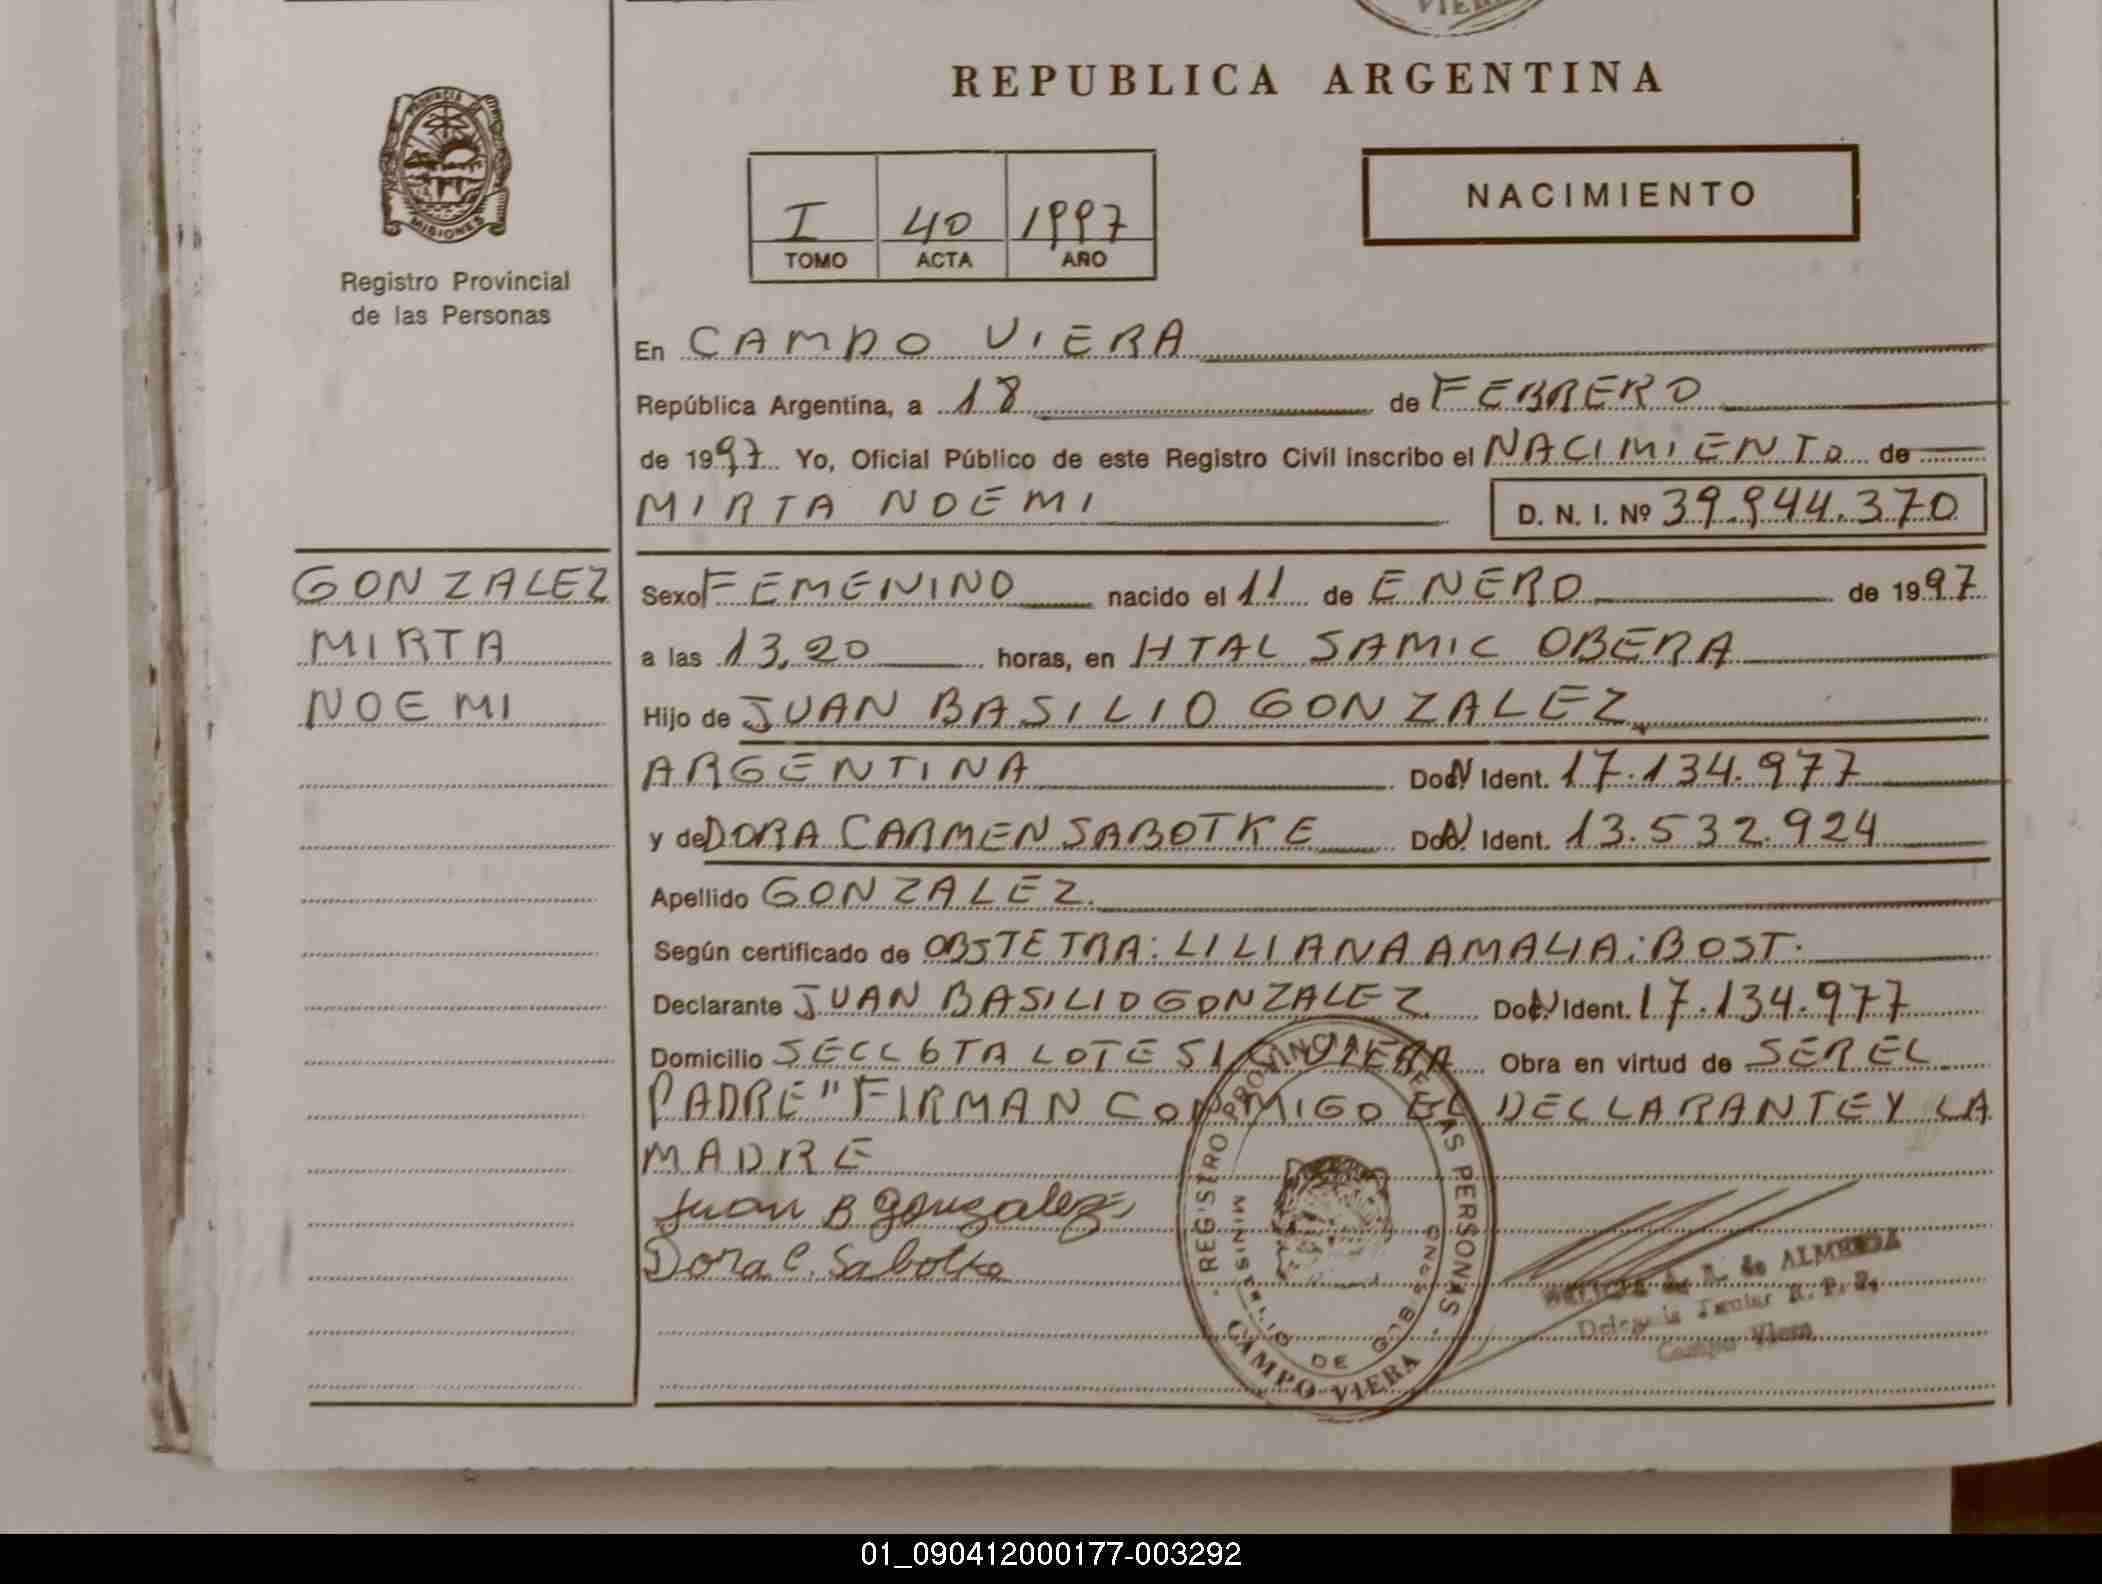 VIERA
REPUBLICA ARGENTINA
PROVINCIA DE
MISIONES
Registro Provincial
de las Personas
I 40 1997
TOMO ACTA AÑO
NACIMIENTO
En CAMPO VIERA
República Argentina, a 18 de FEBRERO
de 1997 Yo, Oficial Público de este Registro Civil inscribo el NACIMIENTO de
MIRTA NOEMI D. N. I. Nº 39.944.370
GONZALEZ
MIRTA
NOEMI
Sexo FEMENINO nacido el 11 de ENERO de 1997
a las 13,20 horas, en HTAL SAMIC OBERA
Hijo de JUAN BASILIO GONZALEZ
ARGENTINA Doc. Ident. 17.134.977
y de DORA CARMEN SABOTKE Doc. Ident. 13.532.924
Apellido GONZALEZ.
Según certificado de OBSTETRA: LILIANA AMALIA: BOST.
Declarante JUAN BASILIO GONZALEZ Doc. Ident. 17.134.977
Domicilio SECC 6TA LOTE 51 C. VIERA Obra en virtud de SER EL
PADRE" FIRMAN CONMIGO EL DECLARANTE Y LA
MADRE
Juan B Gonzalez
Dora C. Sabotke
REGISTRO PROVINCIAL DE LAS PERSONAS
MINISTERIO DE GOB
CAMPO VIERA
de ALMEIDA
Delegada Titular R. P. P.
Campo Viera
01_090412000177-003292